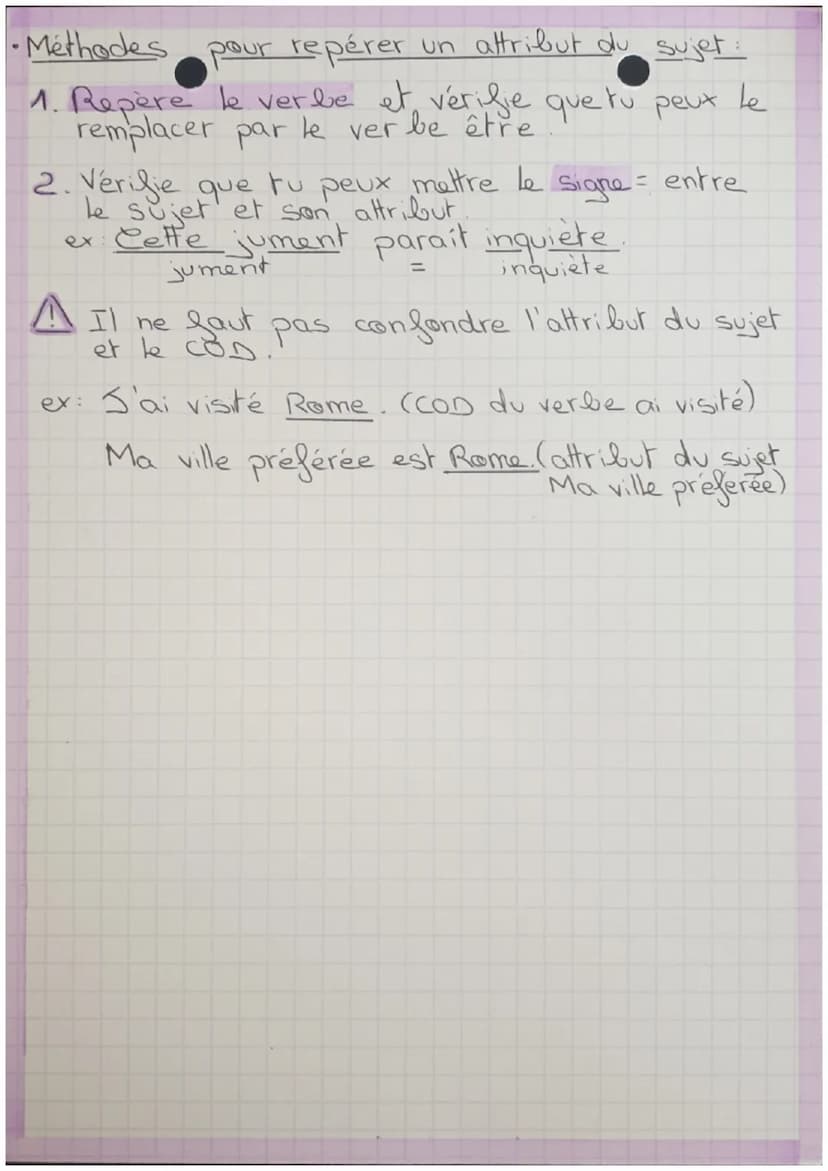 • Méthodes pour repérer un attribut du sujet :
1. Repère le verbe et vérifie que tu peux le
remplacer par le verbe être.
2. Vérifie que tu peux mettre le signe = entre
le sujet et son attribut.
ex: Cette jument paraît inquiète.
jument = inquiète
⚠ Il ne faut pas confondre l'attribut du sujet
et le COD.
ex: J'ai visité Rome. (COD du verbe ai visité)
Ma ville préférée est Rome. (attribut du sujet
Ma ville préférée)